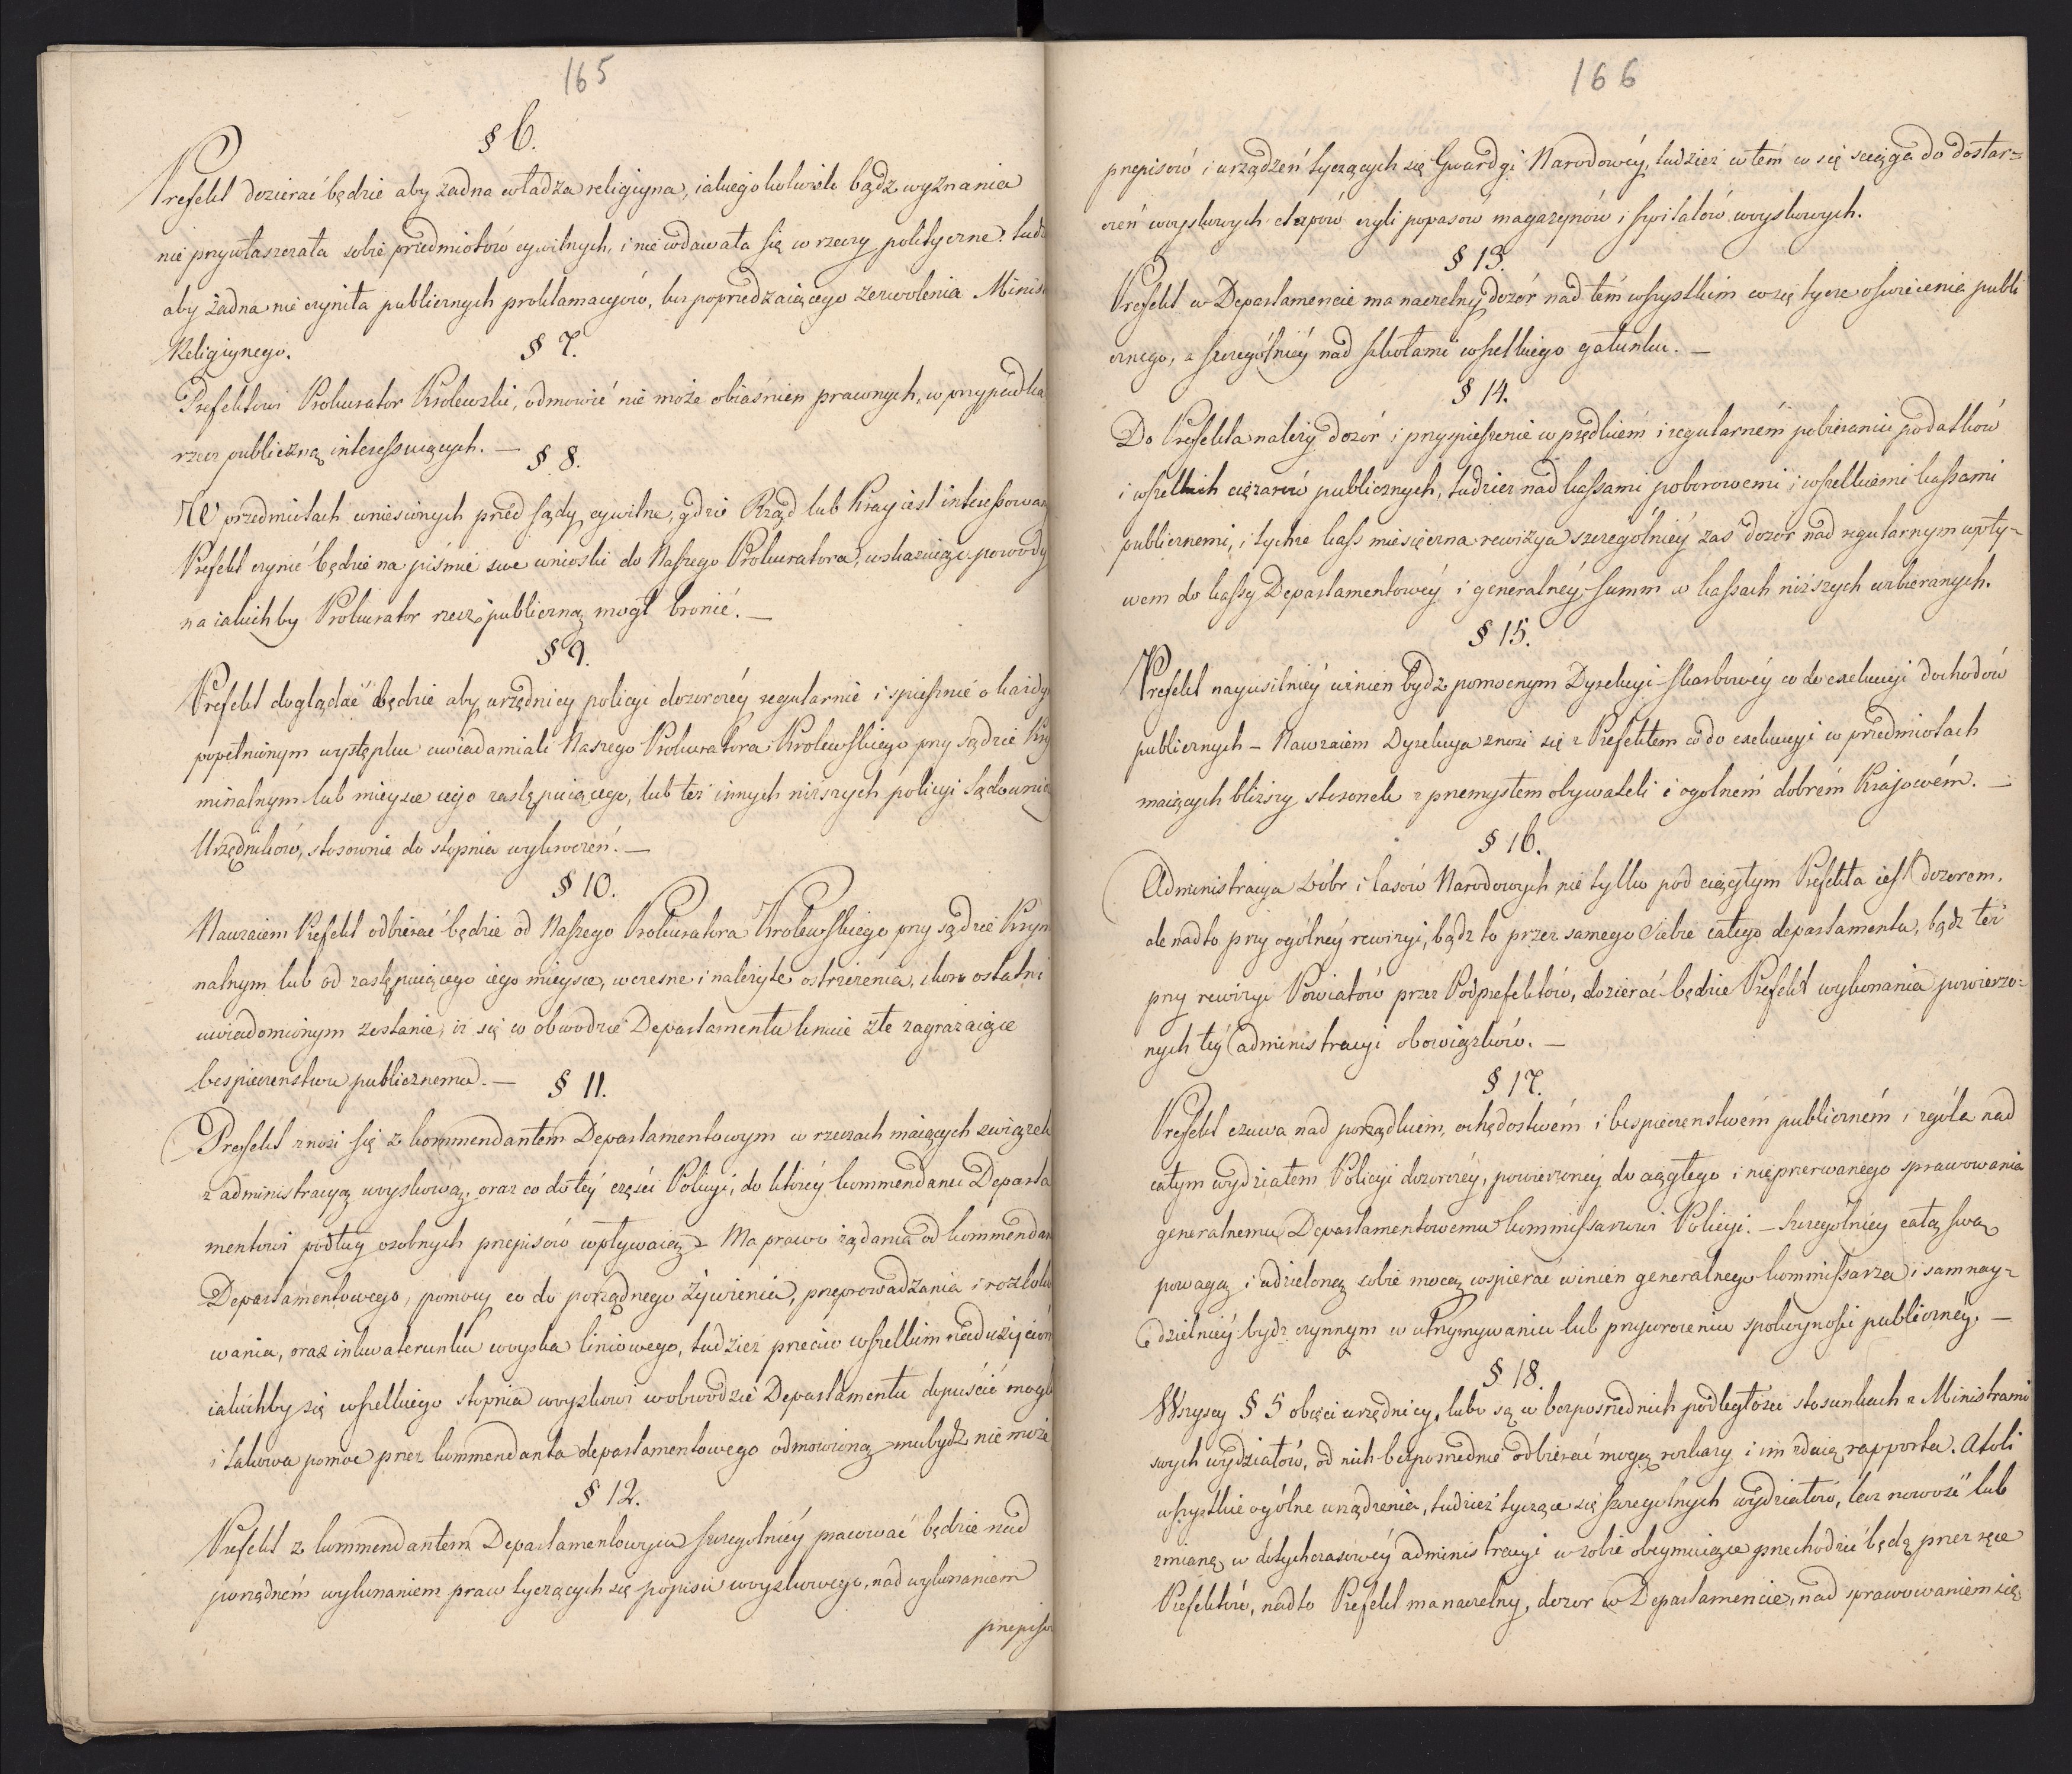 165
§ 6.
Prefekt dozierać będzie aby żadna władza religiyna, iakiegokolwiek bądz wyznania
nie przywłaszczała sobie przedmiotów cywilnych, i nie wdawała się w rzeczy polityczne. tudz
aby żadna nie czyniła publicznych proklamacyów, bez poprzedzaiącego zezwolenia Minis
Religiynego.
§ 7.
Prefektowi Prokurator Krolewski, odmowić nie może obiaśnień prawnych, w przypadka
rzecz publiczną interessuiących. —
§ 8.
W przedmiotach wniesionych przed sądy cywilne, gdzie Rząd lub Kray iest interessowany
Prefekt czynić będzie na piśmie swe wnioski do Naszego Prokuratora, wskazuiąc powody
na iakichby Prokurator rzecz publiczną mogł bronić. —
§ 9.
Prefekt doglądać będzie aby urzędnicy policyi dozorczéy regularnie i spiesznie o każdy
popełnionym występku uwiadamiali Naszego Prokuratora Krolewskiego przy sądzie Kry
minalnym lub mieysce iego zastępuiącego, lub też innych niższych policyi sądownic
Urzędników, stosownie do stopnia wykroczeń. —
§ 10.
Nawzaiem Prefekt odbierać będzie od Naszego Prokuratora Krolewskiego przy sądzie Krym
nalnym lub od zastępuiącego iego mieysce, wczesne i należyte ostrzeżenia, skoro ostatni
uwiadomionym zostanie, iż się w obwodzie Departamentu knuie złe zagrażaiące
bespieczenstwu publicznemu. —
§ 11.
Prefekt znosi się z kommendantem Departamentowym w rzeczach maiących związek
z administracyą woyskową, oraz co do téy części Policyi, do któréy kommendanci Departa
mentowi podług osobnych przepisów wpływaią. Ma prawo żądania od kommendan
Departamentowego, pomocy co do porządnego żywienia, przeprowadzania i rozloko
wania, oraz inkwaterunku woyska liniowego, tudzież przeciw wszelkim nadużyciom
iakichby się wszelkiego stopnia woyskowi w obwodzie Departamentu dopuścić mogli
i takowa pomoc przez kommendanta departamentowego odmowioną mu bydz nie może
§ 12.
Prefekt z kommendantem Departamentowym szczegolniéy pracować będzie nad
porządném wykonaniem praw tyczących się popisu woyskowego, nad wykonaniem
przepiso
166
przepisów i urządzeń tyczących się Gwardyi Narodowéy, tudzież w tém co się ściąga do dostar=
czeń woyskowych etapów czyli popasow magazynów i szpitalów woyskowych.
§ 13.
Prefekt w Departamencie ma naczelny dozór nad tém wszystkim co się tycze oswiecenia publi
cznego, a szczególniéy nad szkołami wszelkiego gatunku. —
§ 14.
Do Prefekta należy dozór i przyspieszenie w prędkiém i regularném pobieraniu podatków
i wszelkich ciężarów publicznych, tudzież nad kassami poborowemi i wszelkiemi kassami
publicznemi, i tychże kass miesięczna rewizya szczególniéy zas dozór nad regularnym wpły-
wem do kassy Departamentowéy i generalnéy summ w kassach niższych uzbieranych.
§ 15.
Prefekt nayusilniéy winien bydz pomocnym Dyrekcyi skarbowéy co do exekucyi dochodów
publicznych – Nawzaiem Dyrekcya znosi się z Prefektem co do exekucyi w przedmiotach
maiących bliższy stosonek z przemysłem obywateli i ogolném dobrém Krajowém. —
§ 16.
Administracya dóbr i lasów Narodowych nie tylko pod ciągłym Prefekta iest dozorem,
ale nadto przy ogólnéy rewizyi, bądz to przez samego siebie całego departamentu, bądz też
przy rewizyi Powiatów przez Podprefektów, dozierać będzie Prefekt wykonania powierzo=
nych téy administracyi obowiązków. —
§ 17.
Prefekt czuwa nad porządkiem, ochędostwém i bespieczenstwém publiczném i zgóła nad
całym wydziałem Policyi dozorczéy, powierzonéy do ciągłego i nieprzerwanego sprawowania
generalnemu Departamentowemu kommissarzowi Policyi. – Szczególniey całą swą
powagą i udzieloną sobie mocą wspierać winien generalnego kommissarza i sam nay=
dzielniéy bydz czynnym w utrzymywaniu lub przywroceniu spokoynosci publicznéy. —
§ 18.
Wszyscy § 5 obięci urzędnicy, lubo są w bezpośrednich podległości stosunkach z Ministrami
swych wydziałów, od nich bezpośrednie odbierać mogą rozkazy i im zdaią rapporta. Atoli
wszystkie ogólne urządzenia, tudzież tyczące się szczegolnych wydziałow, lecz nowość lub
zmianę w dotychczasowéy administracyi w sobie obeymuiące przechodzić będą przez ręce
Prefektów, nadto Prefekt ma naczelny, dozor w Departamencie, nad sprawowaniem się